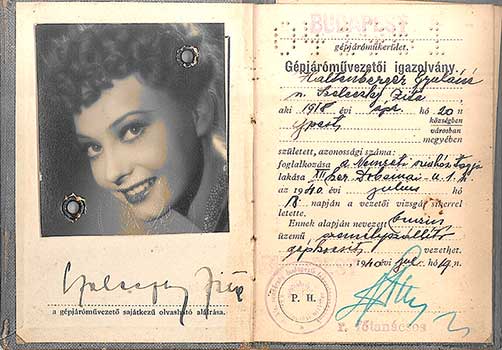 Szeleczky Zita
a gépjáróművezető sajátkezű olvasható aláírása.
BUDAPEST
gépjáróműkerület.
Gépjáróművezetői igazolvány.
Haltenberger Gyuláné
n. Szeleczky Zita
aki 1918 évi apr hó 20 n
községben
városban
megyében
született, azonossági száma:
foglalkozása a Nemzeti színház tagja
lakása XII ker u. 1.
az 1940 évi julius hó
18 napján a vezetői vizsgát sikerrel
letette.
Ennek alapján nevezett benzin
üzemű személyszállító
gépkocsit vezethet.
1940 évi jul hó 19 n.
P. H.
r. főtanácsos